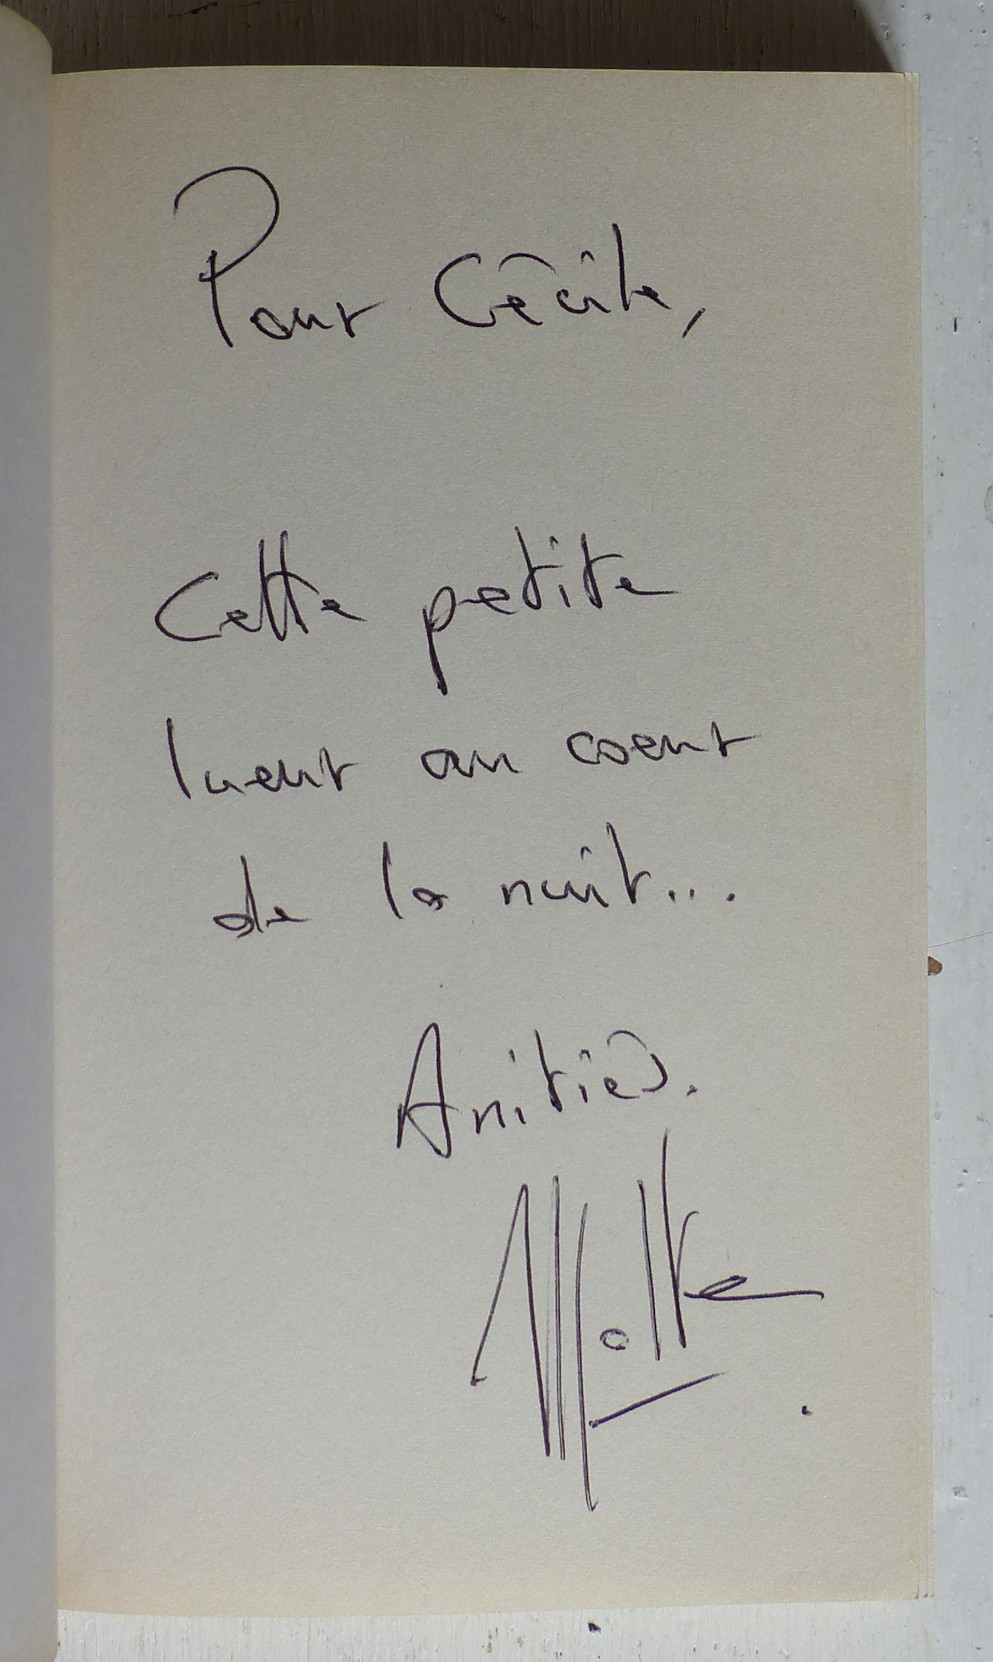 Pour Cécile,
Cette petite
lueur au coeur
de la nuit...
Amitiés.